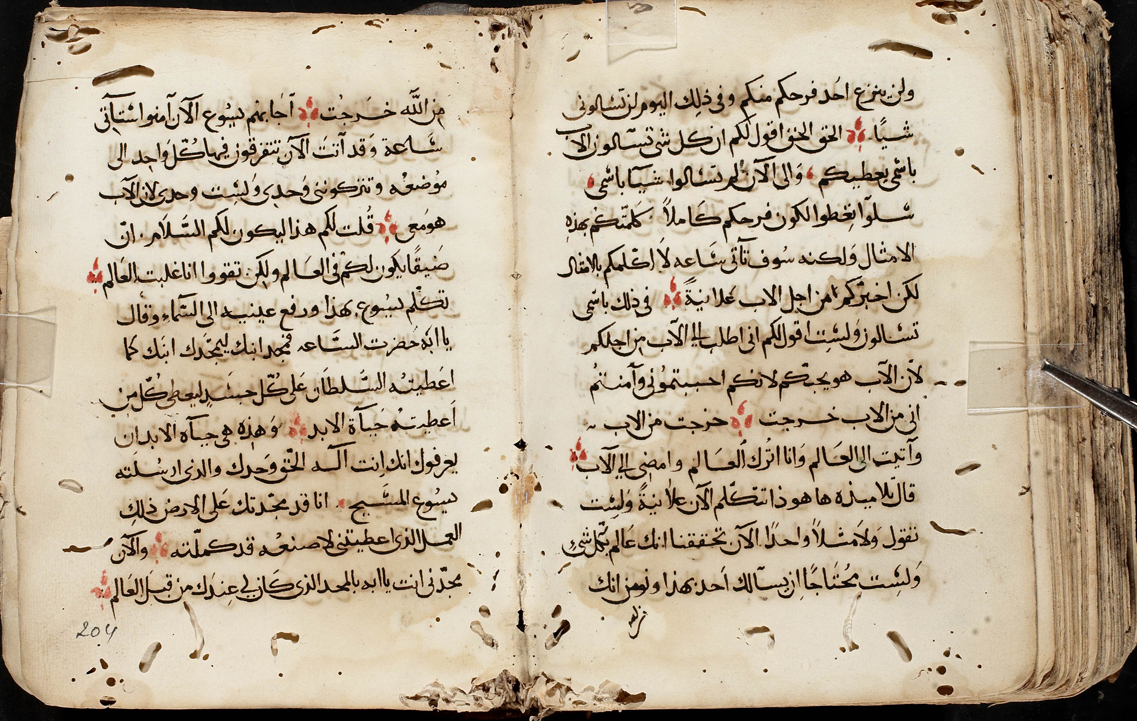 ولن ينزع احد فرحكم منكم وفى ذلك اليوم لن تسالونى
شيًا الحق الحق اقول لكم ان كل شى تسالون الاب
باسمى يعطيكم والى الآن لم تسالوا شيا باسمى
سلوا تعطوا ليكون فرحكم كاملاً كلمتكم بهذه
الامثال ولكنه سوف تآتى ساعه لا اكلمكم بالامثال
لكن اخبركم من اجل الاب علانيةً فى ذلك باسمى
تسالون ولست اقول لكم انى اطلب الى الآب من اجلكم
لان الآب هو يحبكم لانكم احببتمونى وآمنتم
انى من الاب خرجت خرجت من الاب
وآتيت الى العالم وانا اترك العالم وامضى الى الآب
قال تلاميذه ها هوذا تتكلم الآن علانيةً ولست
تقول ولا مثلاً واحدًا الآن تحققنا انك عالم بكل شئ
ولست محتاجًا ان يسآلك احد بهذا ونومن انك
من الله
من الله خرجت آجابهم يسوع الآن آمنوا ستآتى
ساعة وقد آتت الآن تتفرقون فيها كل واحد الى
موضعه وتتركونى وحدى ولست وحدى لان الآب
هو معى قلت لكم هذا ليكون لكم السلام ان
ضيقًا يكون لكم فى العالم ولكن تقووا انا غلبت العالم
تكلم يسوع بهذا ورفع عينيه الى السماء وقال
يا ابه حضرت الساعه فمجد ابنك ليمجدك ابنك كما
اعطيته السلطان على كل جسد ليعطى كل من
آعطيته حياة الابد وهذه هى حياة الابد ان
يعرفوك انك انت آله الحق وحدك والذى ارسلته
يسوع المسيح انا قد مجدتك على الارض ذلك
العمل الذى اعطيتنى لاصنعه قد كملته والآن
مجدنى انت يا ابه بالمجد الذى كان لى عندك من قبل العالم
204